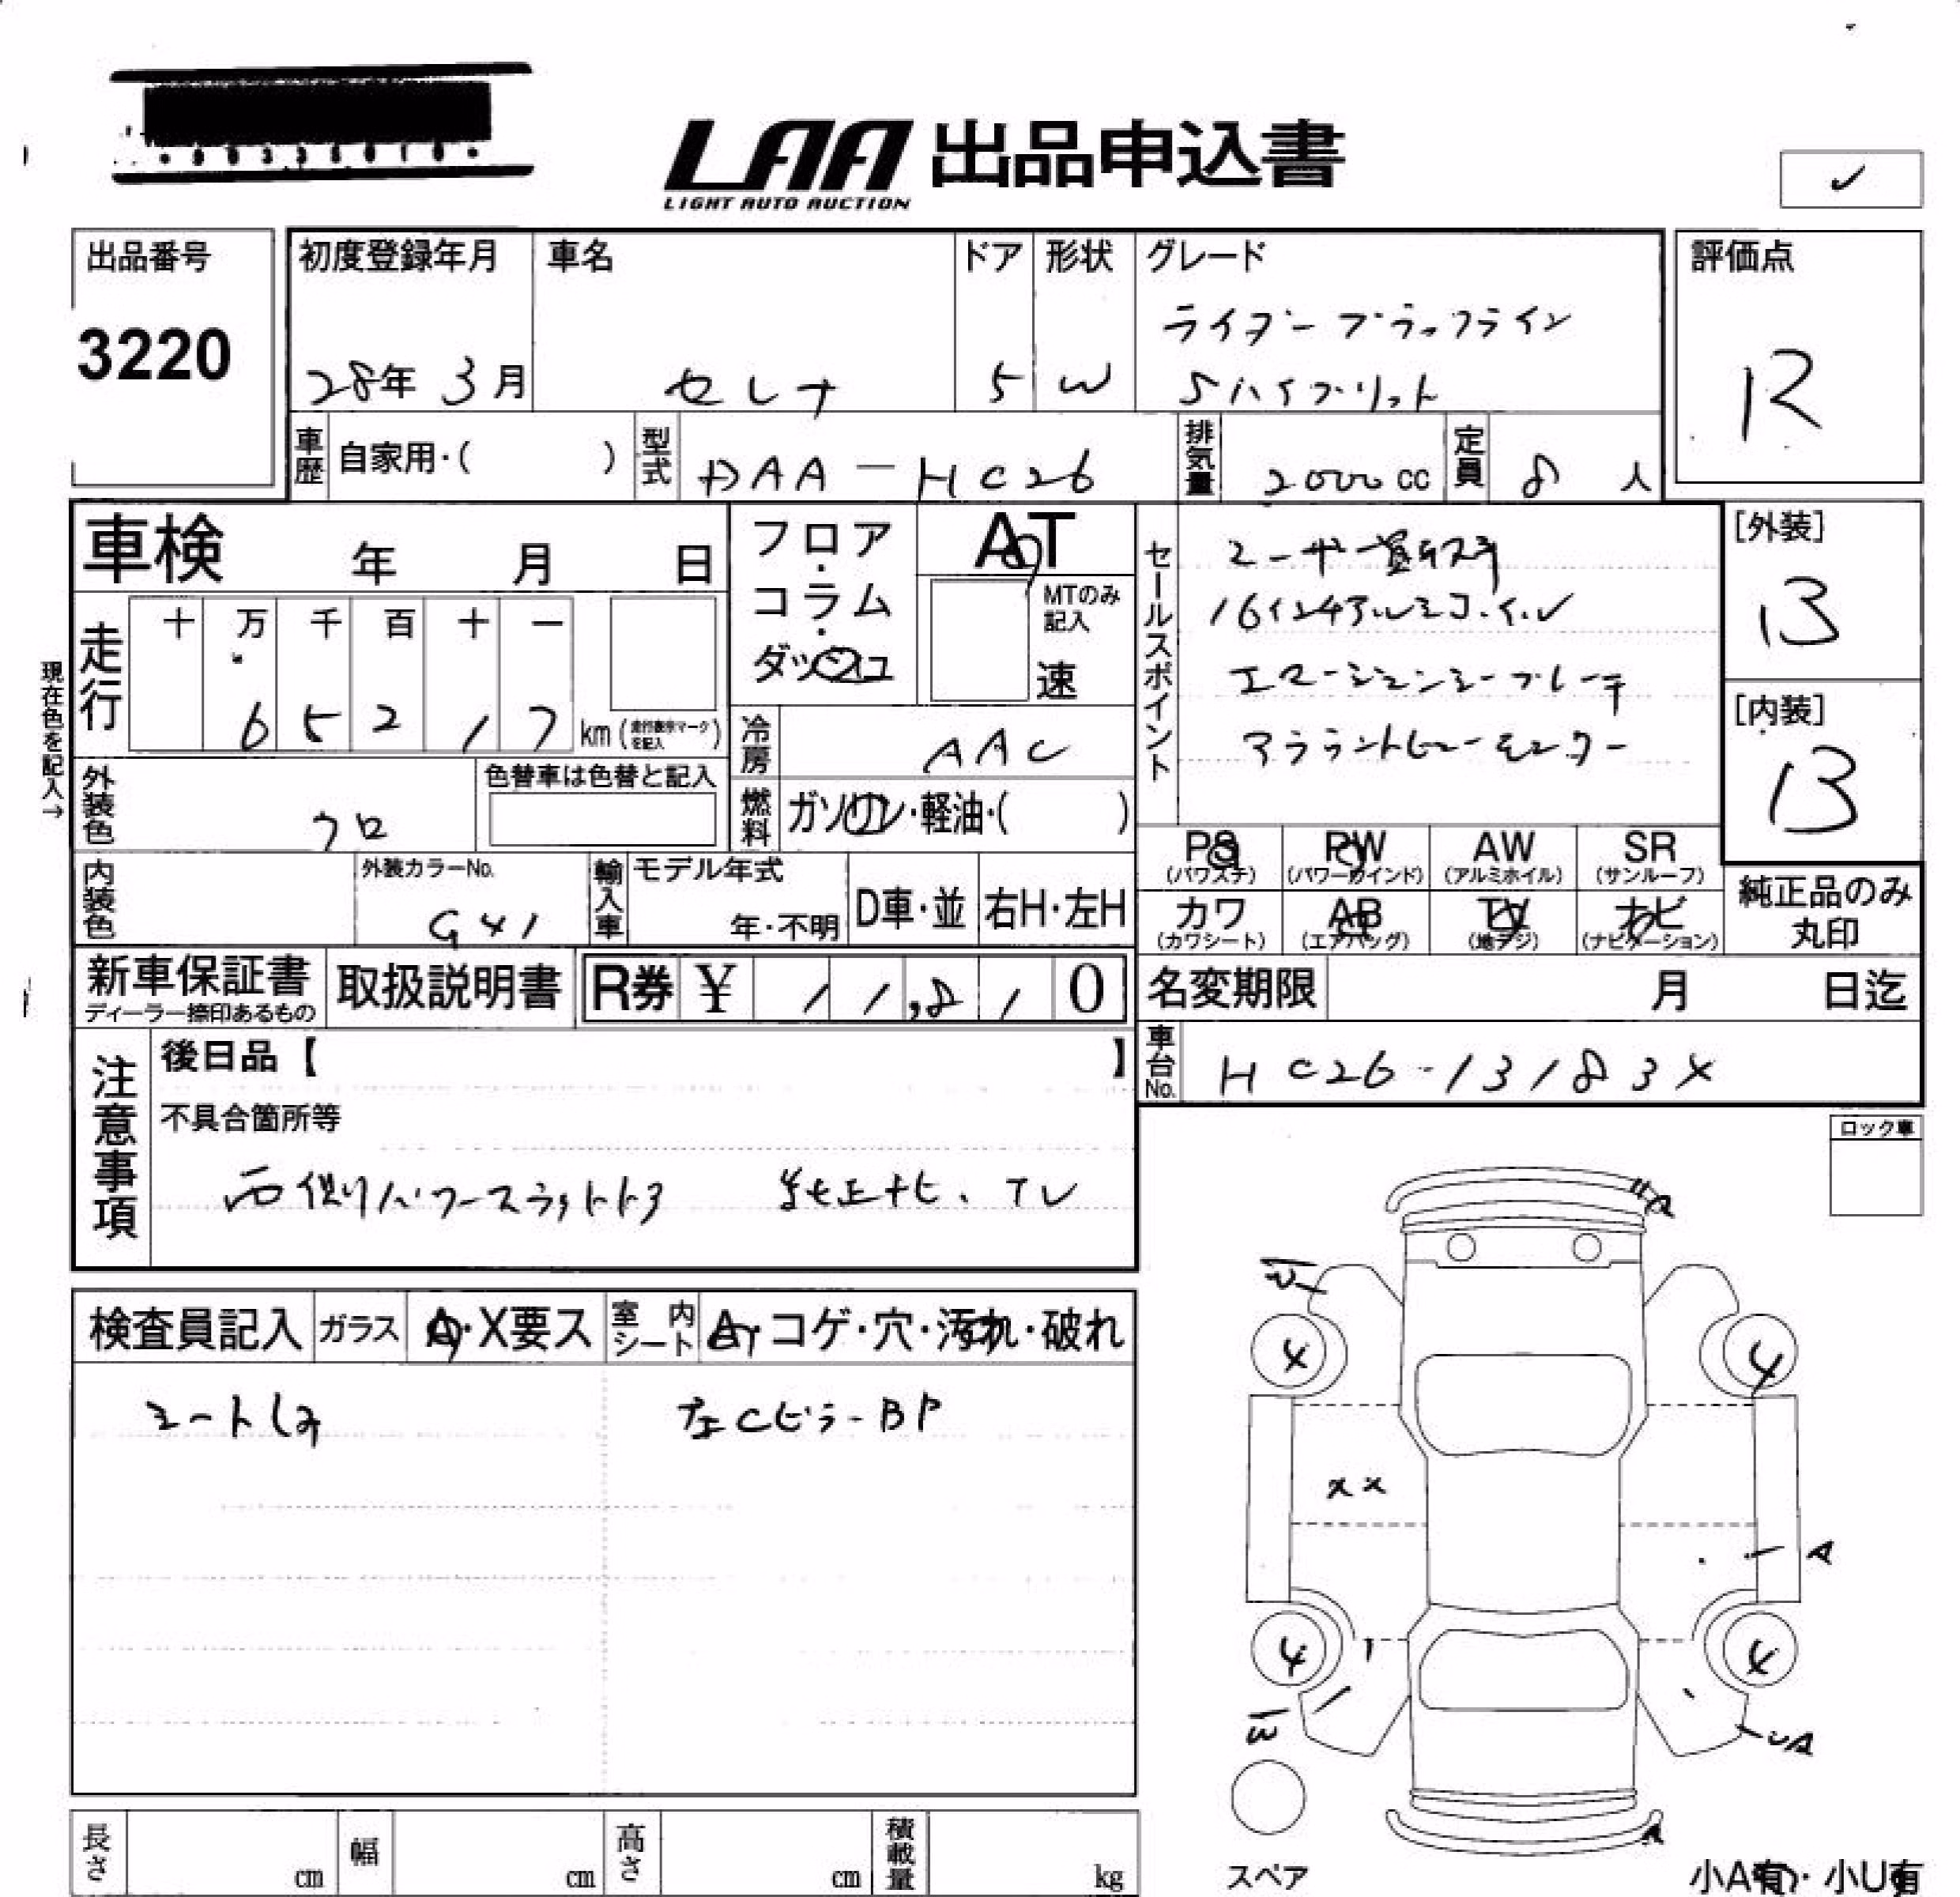 LAA 出品申込書
LIGHT AUTO AUCTION
出品番号
3220
初度登録年月 車名 ドア 形状 グレード
28年 3月 セレナ 5 W
ライダー ブラックライン
Sハイブリット
評価点
R
車歴 自家用・( ) 型式 DAA-HC26 排気量 2000cc 定員 8人
車検 年 月 日
フロア・コラム・ダッシュ
AT
MTのみ記入
速
セールスポイント
レーザー
16インチアルミホイル
エマージェンシーブレーキ
アラウンドビューモニター
[外装]
B
[内装]
B
現在色を記入→
走行 十 万 千 百 十 一
6 5 2 1 7 km (走行表示マークを記入)
冷房 AAC
外装色 クロ
色替車は色替と記入
燃料 ガソリン・軽油・( )
PS (パワステ) PW (パワーウインド) AW (アルミホイル) SR (サンルーフ)
カワ (カワシート) AB (エアバッグ) TV (地デジ) ナビ (ナビゲーション)
純正品のみ丸印
内装色 外装カラーNo. GX1
輸入車 モデル年式 年・不明 D車・並 右H・左H
新車保証書
ディーラー捺印あるもの
取扱説明書
R券 ¥ 11,810
名変期限 月 日迄
車台No. HC26-13183X
注意事項
後日品【 】
不具合箇所等
両側パワースライドドア 純正ナビ、TV
ロック車
検査員記入 ガラス A・X要ス 室内シート A・コゲ・穴・汚れ・破れ
シートしみ 左Cピラー BP
A
W
4 4
XX
A
4 4
W
UA
A
スペア
長さ cm 幅 cm 高さ cm 積載量 kg
小A有・小U有